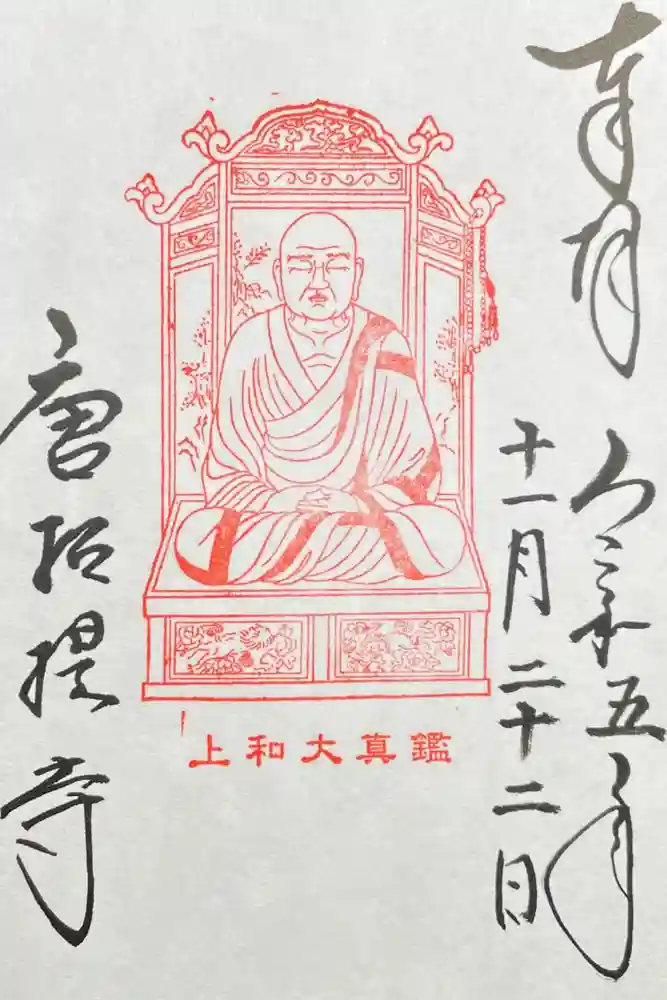 奉拝
令和五年
十一月二十二日
鑑真大和上
唐招提寺